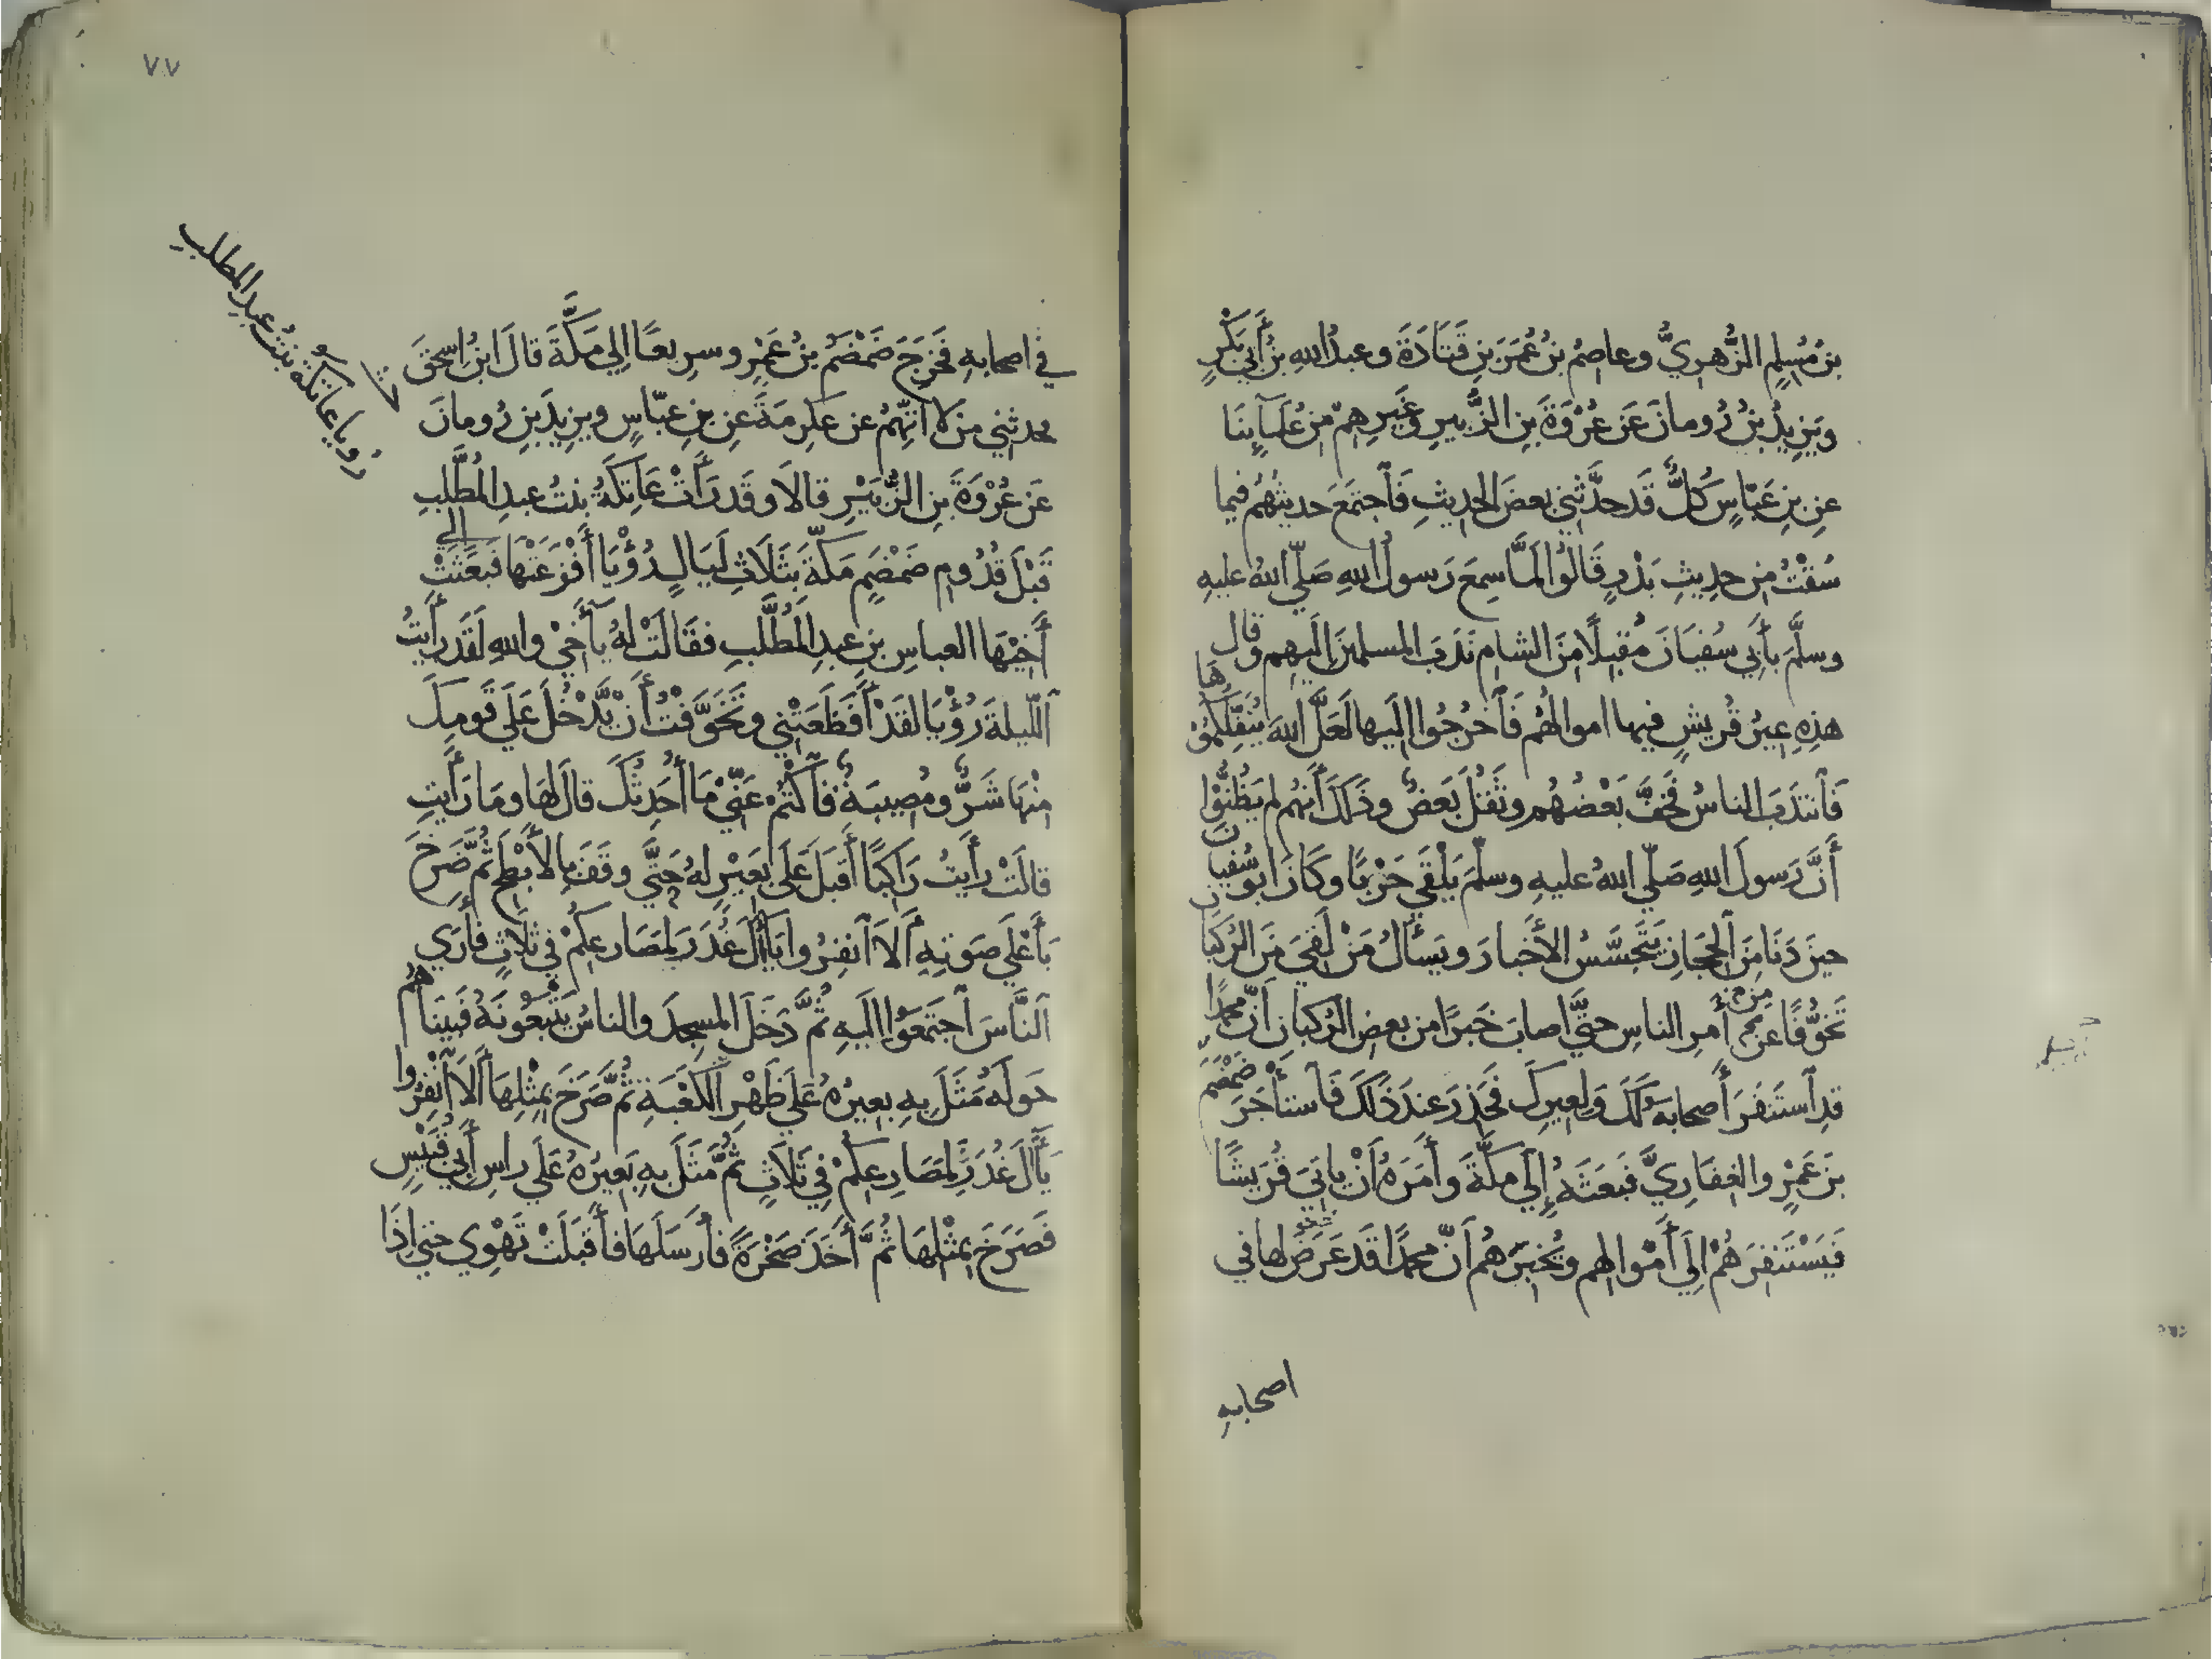 بنُ مُسْلِمٍ الزُّهرِيُّ وعاصِمُ بنُ عُمَرَ بنِ قَتَادَةَ وعبدُ اللهِ بنُ أَبي بَكْرٍ
ويَزِيدُ بنُ رُومانَ عَن عُرْوَةَ بنِ الزُّبيرِ وغَيرِهِمْ مِن عُلَمَآئِنَا
عنِ بنِ عَبّاسٍ كُلٌّ قَد حدَّثَنِي بعضَ الحديثِ فَاجتَمَعَ حديثُهُمْ فيما
سُقْتُ مِن حدِيثِ بَدْرٍ قَالُوا لَمَّا سمِعَ رَسولُ اللهِ صَلّي اللهُ عليهِ
وسلَّمَ بأَبِي سُفيَانَ مُقبِلًا مِنَ الشامِ نَدَبَ المسلمينَ إِلَيهِم وقال
هذِهِ عِيرُ قُريشٍ فيها اموالُهُم فَاخرُجُوا إلَيها لَعَلَّ اللهَ يُنَفِّلُكُمُوهَا
فَانتَدَبَ الناسُ فَخَفَّ بَعْضُهُم وثَقُلَ بَعضٌ وذَلكَ أَنهُم لم يَظُنُّوا
أَنَّ رَسولَ اللهِ صَلّي اللهُ عليهِ وسلّمَ يَلْقَي حَرْبًا وكَانَ ابو سُفيانَ
حينَ دَنَا مِنَ الحِجَازِ يَتَحَسَّسُ الأَخبارَ ويَسأَلُ مَنْ لَقِيَ مِنَ الرُكبَانِ
تَخَوُّفًا عن أَمرِ الناسِ حتَّي اصابَ خَبرًا من بعضِ الرُكبانِ أَنَّ محمدًا
قدِ استَنفَرَ أَصحابَهُ لَكَ وَلِعِيرِكَ فَحَذِرَ عِندَ ذَلكَ فَاستأجَرَ ضَمْضَمَ
بنَ عَمْرٍو الغِفَارِيَّ فَبَعَثَهُ إِلَي مكّةَ وأَمَرَهُ أَنْ يأتيَ قُرَيشًا
فَيَسْتَنفِرَهُمْ إلَي أَمْوالِهم ويُخبِرَهُم أَنّ محمدًا قَد عَرَضَ لها في
اصحابهِ
٧٧
رُويا عاتكة بنتُ عبدِ المطلبِ
في اصحابهِ فَخَرَجَ ضَمْضَمُ بنُ عَمْرٍو سرِيعًا إلي مَكَّةَ قالَ ابنُ اسحقَ
فحدثني من لا اتّهِمُ عن عكرِمَةَ عنِ بنِ عبّاسٍ ويزيدَ بنِ رُومانَ
عَن عُرْوَةَ بنِ الزُّبَيْرِ قالَا وقَد رَأَتْ عَاتِكَةُ بنتُ عبدِ المُطَّلِبِ
قَبْلَ قُدُومِ ضَمْضَمٍ مَكّةَ بثَلاثِ لَيَالٍ رُؤْيَا أَفْزَعَتْهَا فبَعَثَتْ إلي
أَخِيْهَا العباسِ بنِ عبدِ المُطَّلِبِ فقَالَتْ لهُ يَآ أَخِيْ واللهِ لَقَد رأَيتُ
اللّيلةَ رُؤْيَا لقَدْ أَفْظَعَتْنِي وتَخَوَّفْتُ أَنْ يَّدْخُلَ عَلَي قَومِكَ
مِنْهَا شَرٌّ ومُصِيبَةٌ فَاكْتُمْ عَنِّيْ مَا أُحَدِثُكَ قالَ لهَا ومَا رَأَيتِ
قالَتْ رأَيتُ رَاكِبًا أَقبَلَ عَلَي بَعِيْرٍ لهُ حَتَّي وقَفَ بِالأَبْطَحِ ثُمَّ صَرَخَ
بأَعْلَي صَوتِهِ أَلَا انفِرُوا يَآلَ غُدَرَ لِمَصَارِعِكُمْ فِي ثلَاثٍ فأَرَي
النَّاسَ اجتَمَعُوا إلَيهِ ثُمَّ دَخَلَ المسجِدَ والناسُ يَتْبَعُونَهُ فَبَينَا هُم
حَولَهُ مَثَلَ بِهِ بعِيرُهُ عَلَي ظَهْرِ الكَعْبَةِ ثُمَّ صَرَخَ بِمِثْلِهَا أَلَا انْفِرُوا
يَآلَ غُدَرَ لِمَصَارِعِكُمْ فِي ثلَاثٍ ثُمَّ مَثَلَ بهِ بَعِيرُهُ عَلَي راسِ أَبِي قُبَيْسٍ
فَصَرَخَ بِمِثْلِهَا ثُمَّ أَخَذَ صَخْرَةً فأَرسَلَهَا فأَقبَلَتْ تَهْوِي حتي إذَا